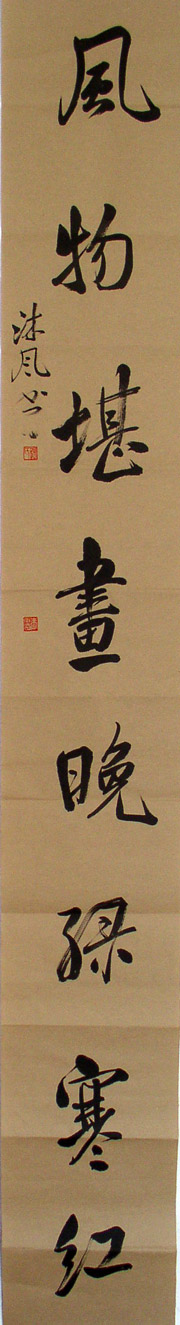 風物堪畫晚綠寒紅
沐風书